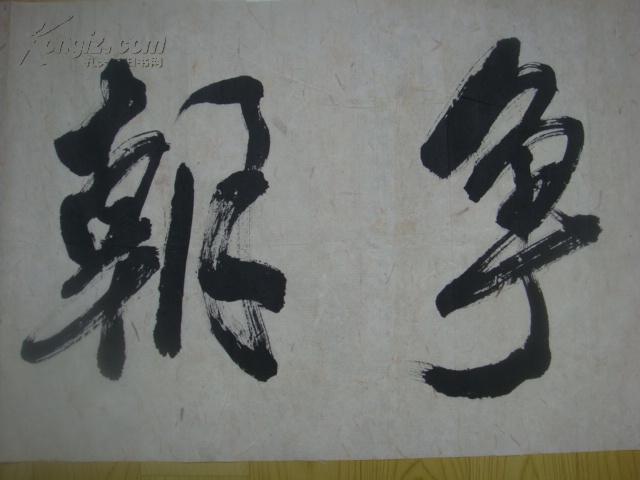 争朝
Kongfz.com
孔夫子旧书网